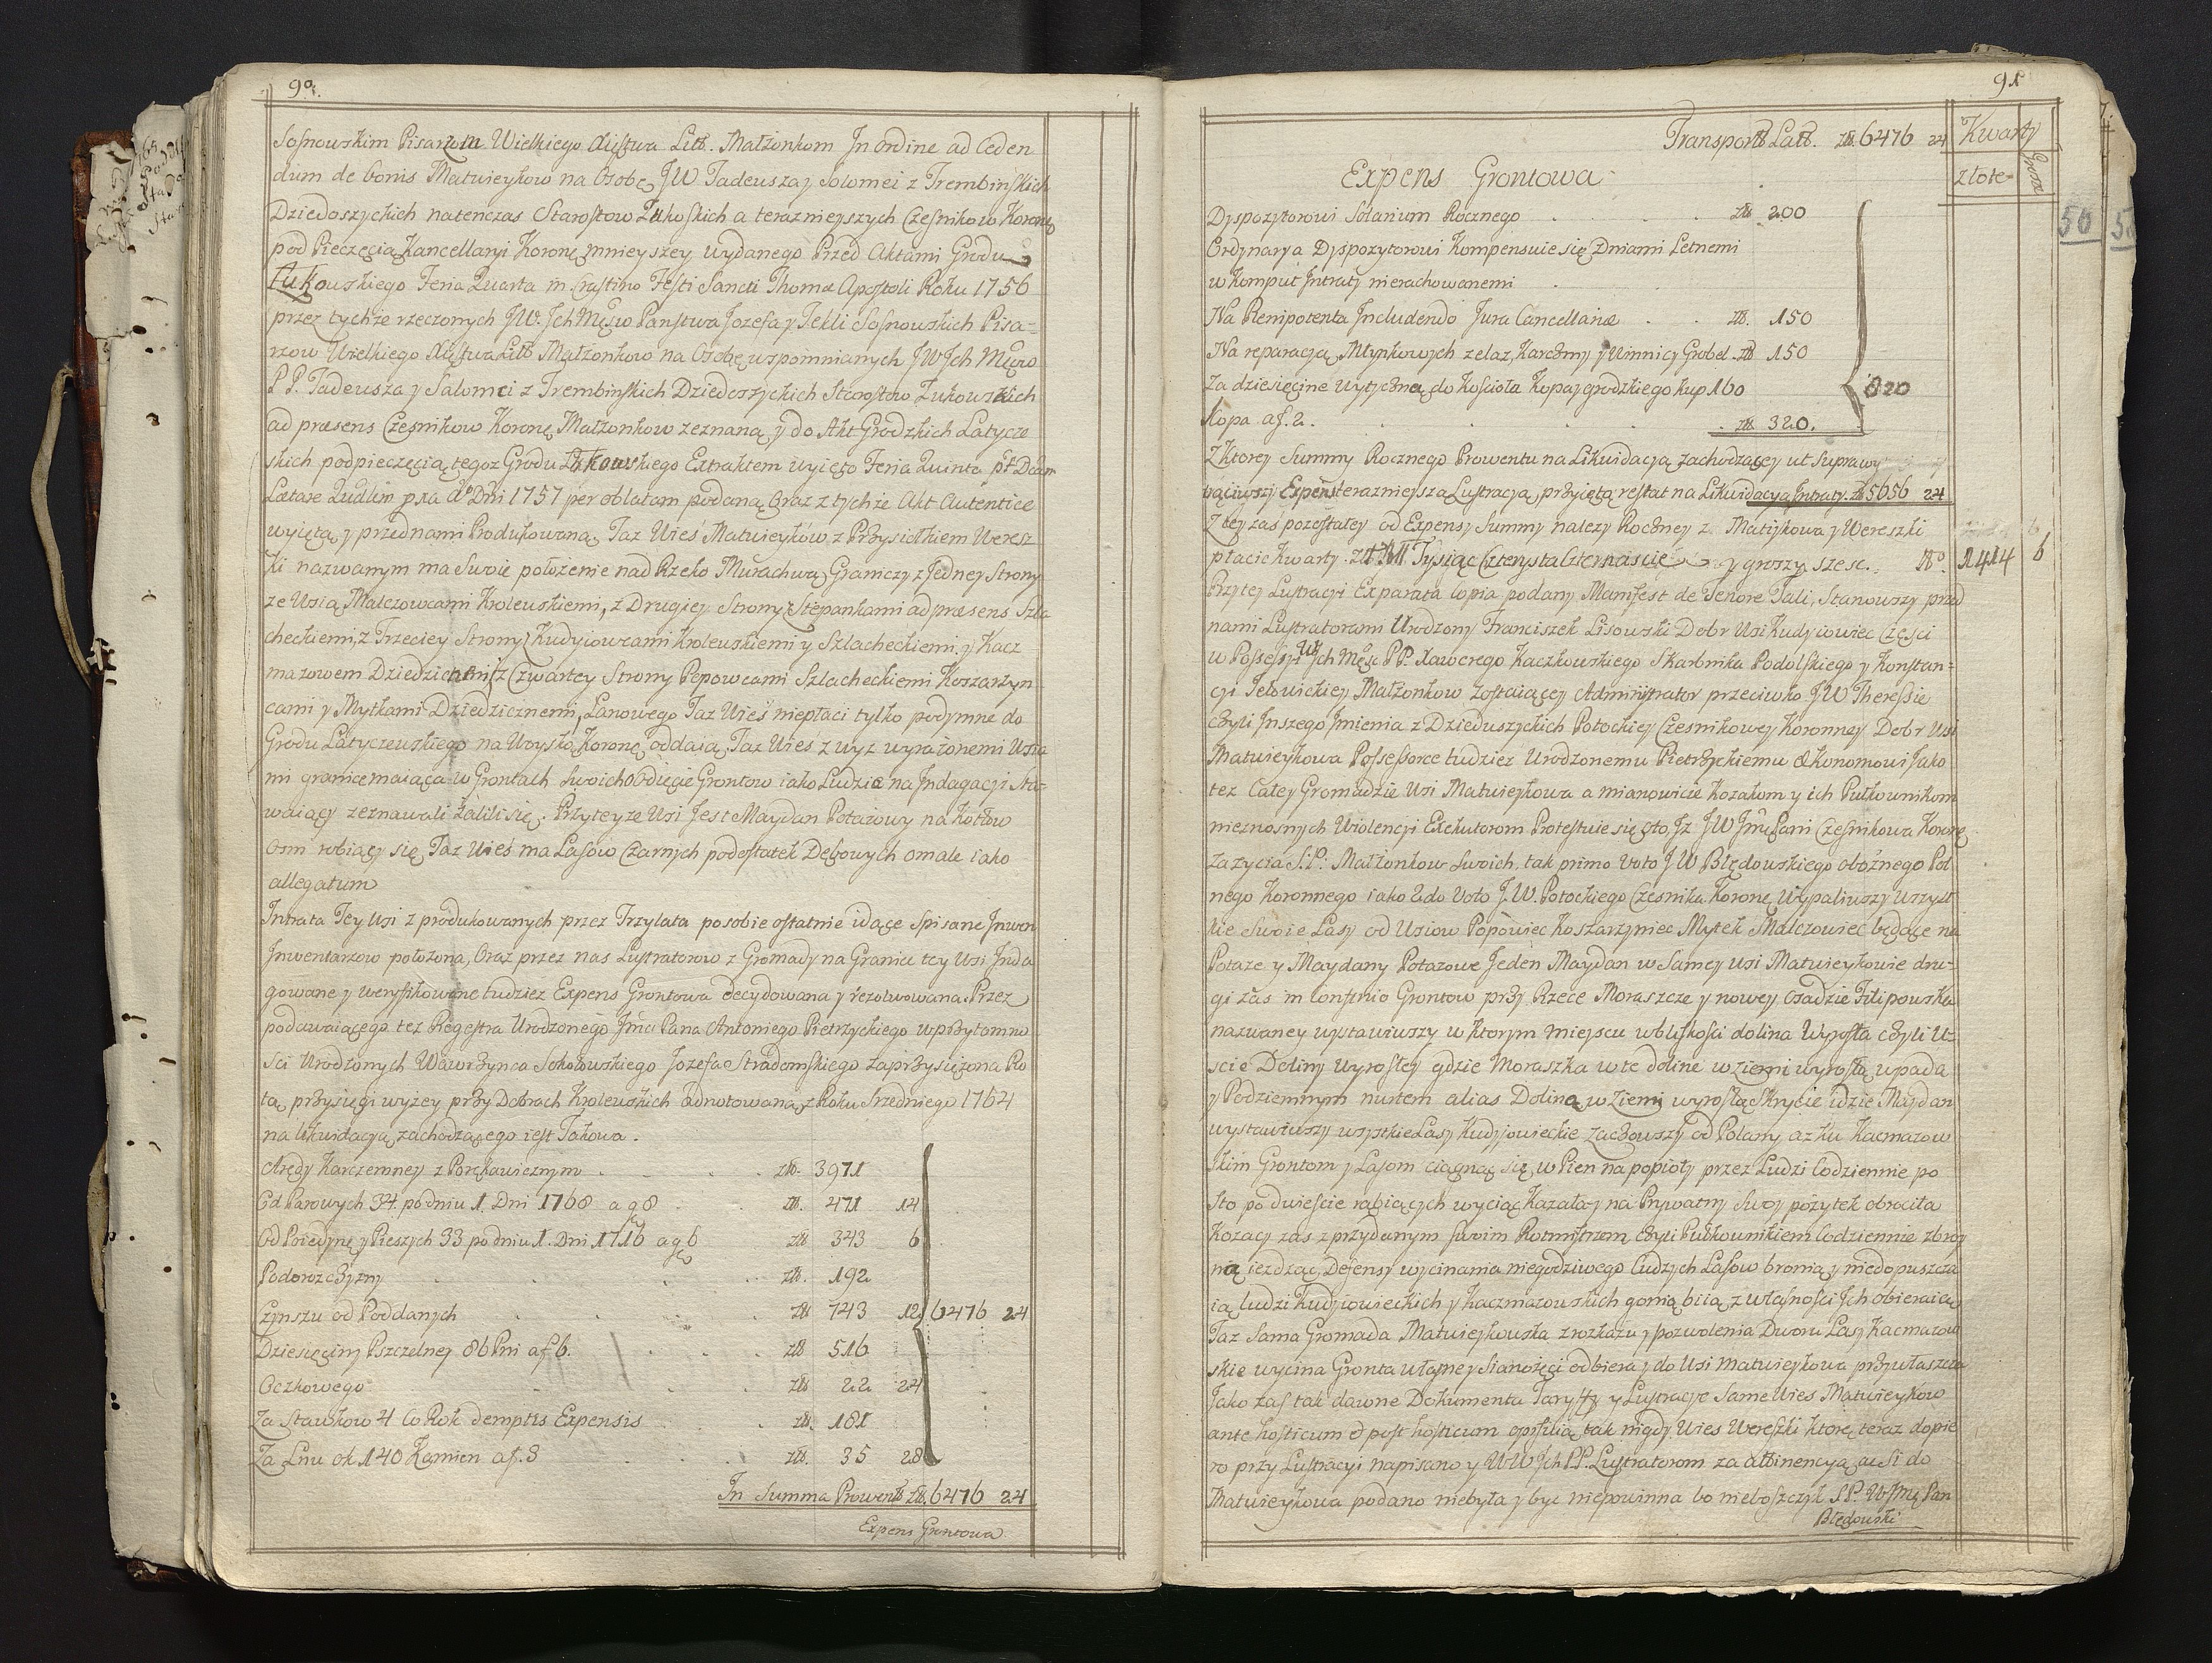 90.
Sosnowskim Pisarzom Wielkiego Xięstwa Litt. Małżonkom In ordine ad Ceden
dum de bonis Matwieykow na Osobę JW Tadeusza y Solomei z Trembinskich
Dziedoszyckich natenczas Starostow Łukoskich a teraznieyszych Czesnikow Koronę
pod Pieczęcią Kancellaryi Koronę mnieyszey wydanego Przed Aktami Grodu
Łukowskiego Feria Quarta in Crastino Festi Sancti Thomæ Apostoli Roku 1756
przez tychże rzeczonych JW. Ich Męściow Panstwa Jozefa y Tekli Sosnowskich Pisa=
rzow Wielkiego Xięstwa Litt Małżonkow na Osobę wspomnianych JW Ich Męściow
P P. Tadeusza y Salomei z Trembinskich Dziedoszyckich Starostow Łukowskich
ad præsens Czesnikow Koronę Małżonkow zeznaną, y do Akt Grodzkich Latycze
skich pod pieczęcią tegoz Grodu Łukowskiego Extraktem wyięto Feria Quinta pst Dcam
Lætare Qudlim pxa Ao Dni 1757 per oblatam podaną Oraz z tychże Akt Autentice
wyiętą y przed nami Produkowaną, Taz Wieś Matwieyków z Przysiołkiem Weresz
ki nazwanym ma Swoie położenie nad Rzeko Murachwą, Graniczy z Jedney Strony
ze Wsią Malczowcami Krolewskiemi, z Drugiey Strony z Stepankami ad præsens Szla
checkiemi, z Trzeciey Strony z Kudyiowcami Krolewskiemi y Szlacheckiemi y Kacz
mazowem Dziedzicznemi, z Czwartey Strony Pepowcami Szlacheckiemi Koszarzyn
cami y Mytkami Dziedzicznemi, Lanowego Taz Wieś niepłaci tylko podymne do
Grodu Latyczewskiego na Woysko Koronę oddaią, Taz Wieś z wyz wyrażonemi Wsia
mi granice maiąca w Grontach Swoich Odięcie Grontow iako Ludzie na Indagacyi sta=
waiący zeznawali żalili się. Przy teyze Wsi Jest Maydan Potażowy na Kotłow
osm robiący się, Taz Wieś ma Lasow Czarnych podostatek Dębowych omale iako
allegatum
Intrata Tey Wsi z produkowanych przez Trzy lata po sobie ostatnie idące Spisane Inwen
Inwentarzow położona, Oraz przez nas Lustratorow z Gromady na Granice tey Wsi Inda
gowane y weryfikowane tudziez Expens Grontowa decydowana y rezolwowana. Przez
podawaiącego tez Regestra Urodzonego Jmci Pana Antoniego Pietrzyckiego w przytomno
sci Urodzonych Wawrzynca Sokołowskiego Jozefa Stradomskiego zaprzysiężona Ro
tą przysięgi wyżey przy Dobrach Krolewskich Odnotowaną z Roku Srzedniego 1764
na likwidacyą zachodzącego iest Takowa.
Arędy Karczemney z Porękawicznym . . . złł. 3971
Od Parowych 34. po dniu 1. Dni 1768 a g 8 . . złł. 471 14
Od Poiedynę y Pieszych 33 po dniu 1. Dni 1716 a g 6 złł 343 6
Podorozczyzny . . . złł. 192
Czynszu od Poddanych . . . złł 743 12 6476 24
Dziesięciny Pszczelney 86 Pni af 6. . . . złł 516
Oczkowego . . . złł 22 24
Za Stawkow 4 Co Rok demptis Expensis . . złł. 181
Za Lnu ok 140 Kamien af. 8 . . . złł. 35 28
In Summa Prowent złł. 6476 24
Expens Grontowa
91
Transport Latt. złł. 6476 24 Kwarty
złote Grosz
Expens Grontowa
Dyspozytorowi Solarium Rocznego . . . złł 200
Ordynarya Dyspozytorowi Kompensuie się Dniami Letnemi
w Komput Intraty nierachowanemi .
Na Plenipotenta Includendo Jura Cancellariæ . . złł. 150
Na reparacyą Młynkowych zelaz, Karczmy y Winnicy Grobel złł 150
Za dziesięcine wytyczną do Kościoła Kopaygrodzkiego kup 160 820
Kopa af. 2. . . . złł 320.
Z ktorey Summy Rocznego Prowentu na Likwidacyą zachodzącey ut Supra wy
trąciwszy Expens teraznieyszą Lustracyą, przyiętą restat na Likwidacyą Intraty. złł 5656 24
Z tey zaś pozostałey od Expensy Summy nalezy Roczney z Matiykowa y Wereszki
płacic Kwarty. złł. Tysiąc Czterysta Czternascie y groszy szesc. No. 1414 6
Przy tey Lustracyi Exparata Copia podany Manifest de Tenore Tali, Stanowszy przed
nami Lustratorami Urodzony Franciszek Lisowski Dobr Wsi Kudyiowiec Częsci
w Possessyi W Ich Męśc PP. Xawerego Kaczkowskiego Skarbnika Podolskiego y Konstan=
cyi Jełowickiey Małżonkow zostaiącey Administrator przeciwko JW Theressie
czyli Inszego Imienia z Dzieduszyckich Potockiey Czesnikowey Koronney Dobr Wsi
Matwieykowa Possessorce tudziez Urodzonemu Pietrzyckiemu Ekonomowi Jako
tez Całey Gromadzie Wsi Matwieykowa a mianowicie Kozakom y ich Pułkownikom
nieznosnych Wiolencyi Exekutorom Protestuie się oto, Iz JW Jmę Pani Czesnikowa Koronę
za zycia S. P. Małżonkow Swoich, tak primo voto JW Błędowskiego oboznego Pol
nego Koronnego iako 2do Voto J. W. Potockiego Czesnika Koronę Wypaliwszy wszyst
kie Swoie Lasy od Wsiow Popowiec Koszarzyniec Mytek Malczowiec będące na
Potaze y Maydany Potazowe Jeden Maydan w Samey Wsi Matwieykowie dru=
gi zas in Confinio Grontow przy Rzece Moraszcze y nowey osadzie Filipowska
nazwaney wystawiwszy w ktorym mieyscu w bliskości dolina Wyrosła czyli U=
scie Doliny wyrosłey gdzie Moraszka w te doline w ziemi wyrosłą wpada
y Podziemnym nurtem alias Doliną w Ziemi wyrosłą Skrycie idzie Maydan
wystawiwszy wszystkie Lasy Kudyiowieckie zacząwszy od Polany az ku Kacmazow
skim Grontom y Lasom ciągnąć się, w Pien na popioły przez Ludzi Codziennie po
sto po dwiescie rąbiących wyciąć Kazała y na Prywatny Swoy pożytek obrociła
Kozacy zas z przydanym swoim Rotmistrzem czyli Pułkownikiem Codziennie zbroy
nią iezdząc, Defensy wycinania niegodziwego Cudzych Lasow bronią y niedopuszcza
ią ludzi Kudyiowieckich y Kaczmazowskich gonią biią z własności Ich obieraią
Taz Sama Gromada Matwieykowska z rozkazu y pozwolenia Dworu Lasy Kacmazow
skie wycina Gronta własney Sianożęci odbiera y do Wsi Matwieykowa przywłaszcza
Jako zas tak dawne Dokumenta Taryffy y Lustracye Same Wies Matwieykow
ante hosticum & post hosticum opisuią, tak nigdy Wies Wereszki ktorę teraz dopie
ro przy Lustracyi napisano y WW Ich PP. Lustratorom za attinencyą ac Si do
Matwieykowa podano niebyła y byc niepowinna bo nieboszczyk S. P. W Jmę Pan
Błędowski
50